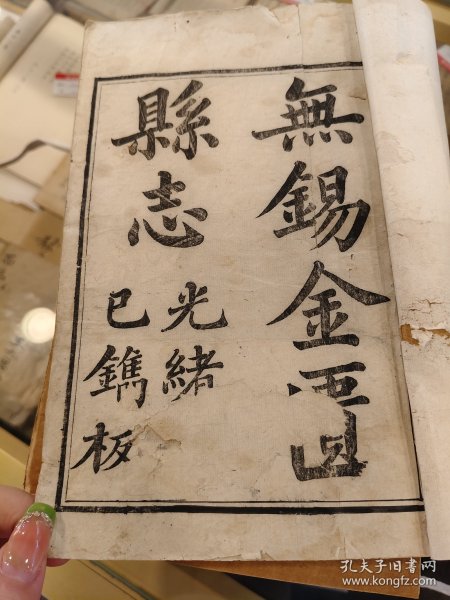 無錫金匱
縣志
光緒
巳鐫板
孔夫子旧书网
www.kongfz.com